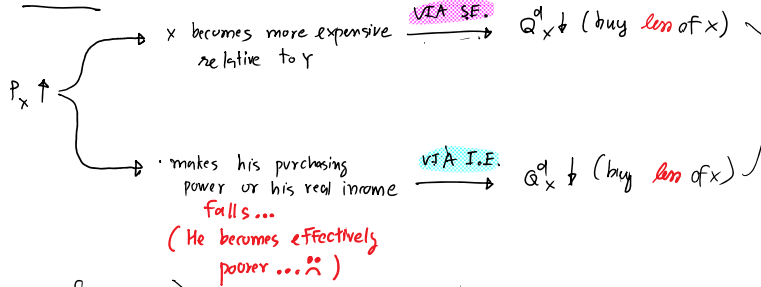 VIA S.E.
x becomes more expensive
relative to Y
Qᵈₓ↓ (buy less of x)
Pₓ ↑
• makes his purchasing
power or his real income
falls...
(He becomes effectively
poorer ...☹)
VIA I.E.
Qᵈₓ ↓ (buy less of x)